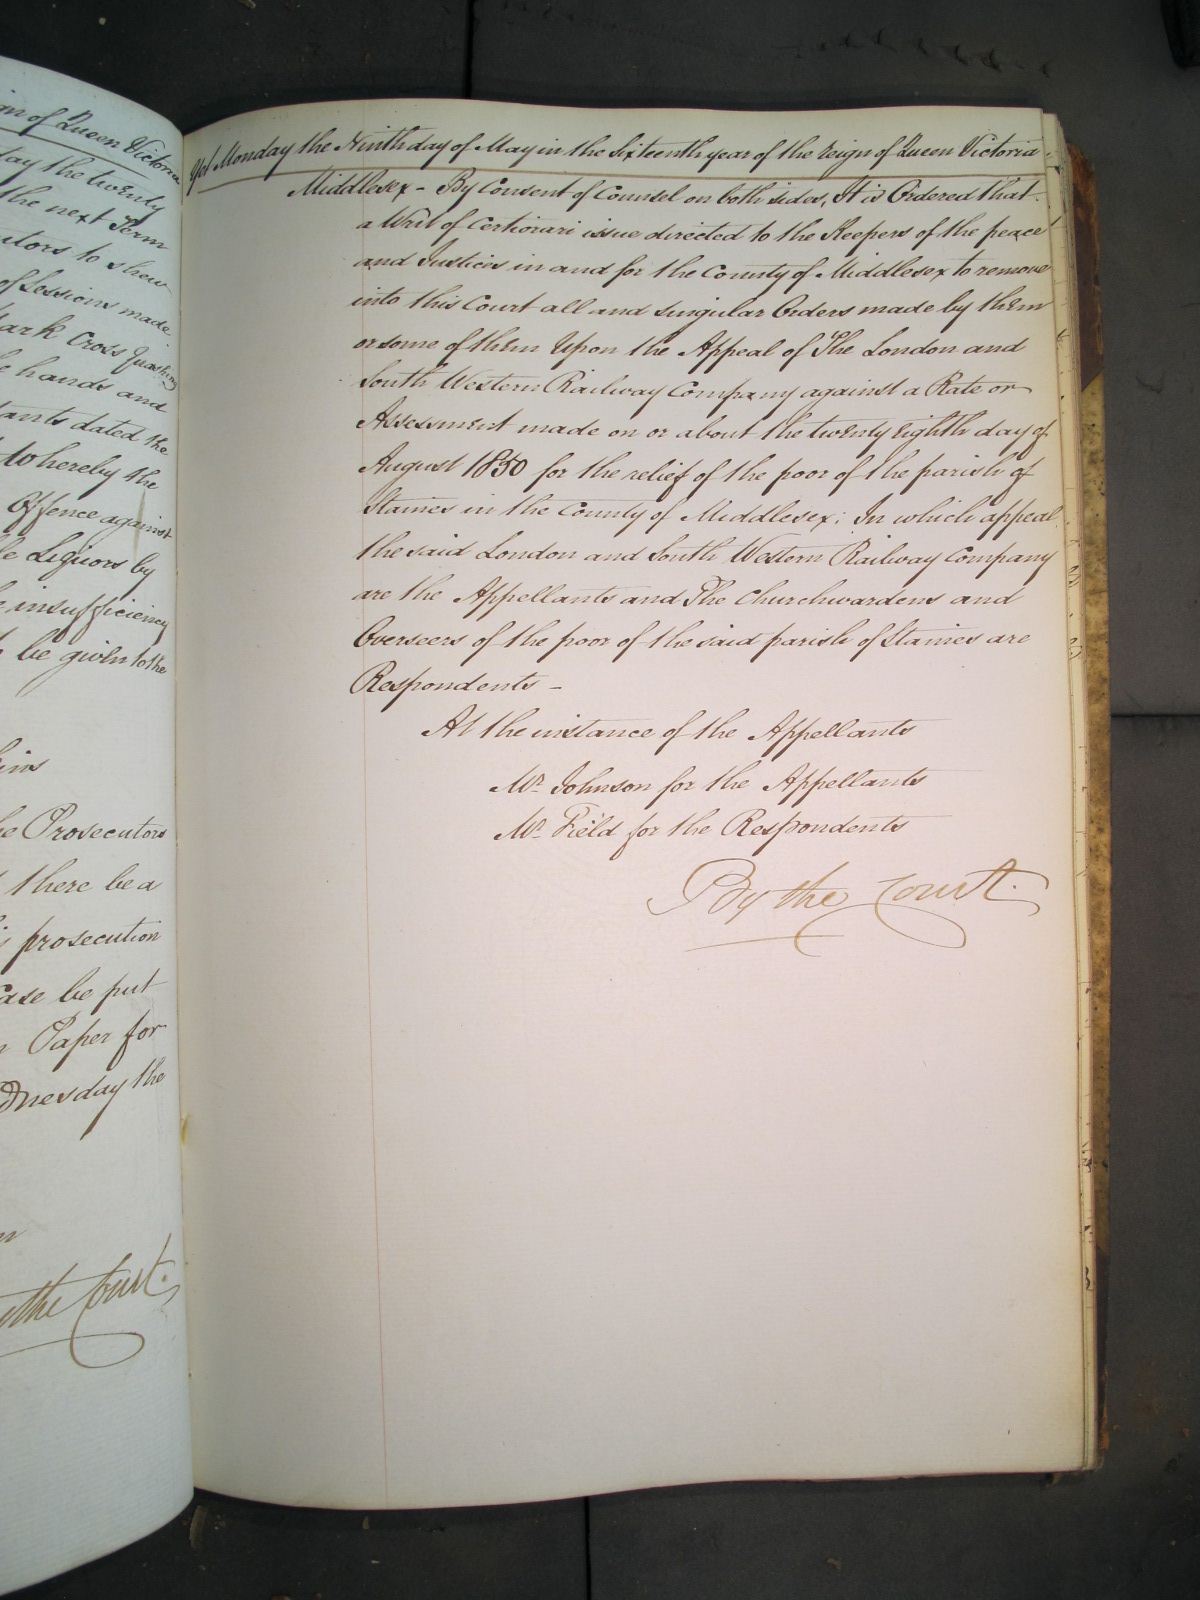 ign of Queen Victoria
day the twenty
the next Term
utors to shew
of Sessions made
Mark Cross Quashing
e hands and
tants dated the
whereby the
Offence against
le Liquors by
e insufficiency
be given to the
kins
he Prosecutors
there be a
s prosecution
Case be put
n Paper for
Wednesday the
y the Court.
Yet Monday the Ninth day of May in the Sixteenth year of the reign of Queen Victoria
Middlesex – By Consent of Counsel on both sides, It is Ordered that
a Writ of Certiorari issue directed to the Keepers of the peace
and Justices in and for the County of Middlesex to remove
into this Court all and singular Orders made by them
or some of them Upon the Appeal of The London and
South Western Railway Company against a Rate or
Assessment made on or about the twenty eighth day of
August 1850 for the relief of the poor of the parish of
Staines in the County of Middlesex; In which appeal
the said London and South Western Railway Company
are the Appellants and The Churchwardens and
Overseers of the poor of the said parish of Staines are
Respondents –
At the instance of the Appellants
Mr. Johnson for the Appellants
Mr. Field for the Respondents
By the Court.